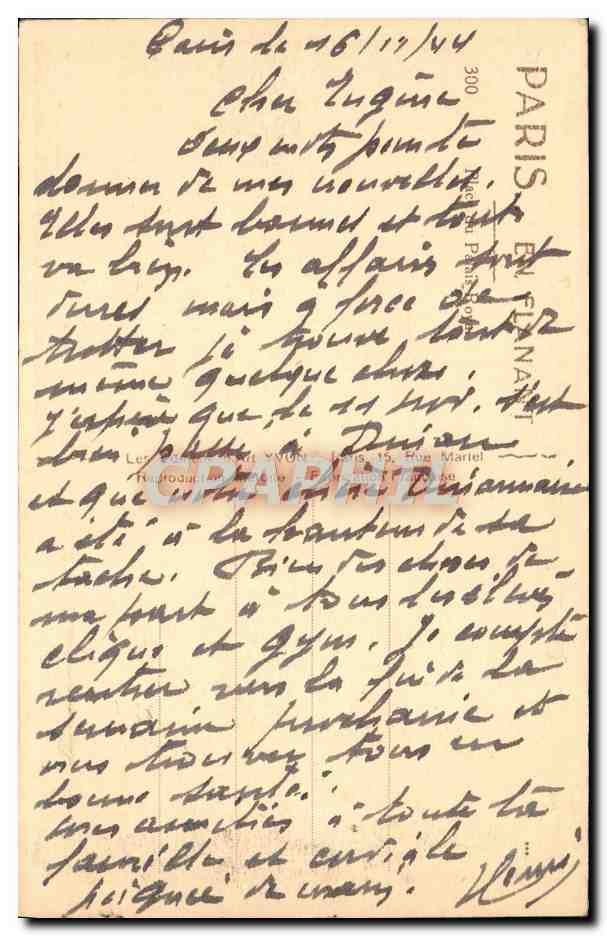 Paris le 16/11/44
Cher Eugène
deux mots pour te
donner de mes nouvelles.
Elles sont bonnes et tout
va bien. Les affaires sont
dures mais à force de
trotter je trouve tout de
même quelque chose.
J'espère que le 11 nov. s'est
bien passé à Dinan
et que notre Dinannaise
a été à la hauteur de sa
tache. Bien des choses de
ma part à tous les élèves
clique et gym. Je compte
rentrer vers la fin de la
semaine prochaine et
vous trouver tous en
bonne santé.
Mes amitiés à toute la
famille et cordiale
poignée de mains.
Henri
PARIS
EN FLANANT
300
Place du Palais Royal
YVON
Paris, 15, Rue Martel
Fabrication Française
CPARAMA